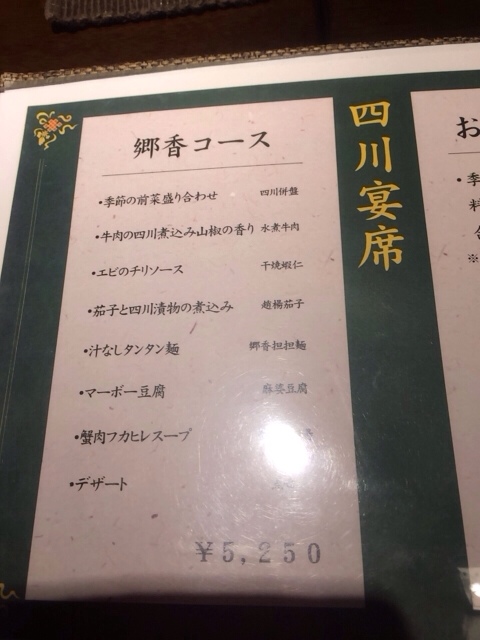 四川宴席
郷香コース
・季節の前菜盛り合わせ 四川併盤
・牛肉の四川煮込み山椒の香り 水煮牛肉
・エビのチリソース 干焼蝦仁
・茄子と四川漬物の煮込み 趙楊茄子
・汁なしタンタン麺 郷香担担麺
・マーボー豆腐 麻婆豆腐
・蟹肉フカヒレスープ
・デザート
¥5,250
お
・季
料
※